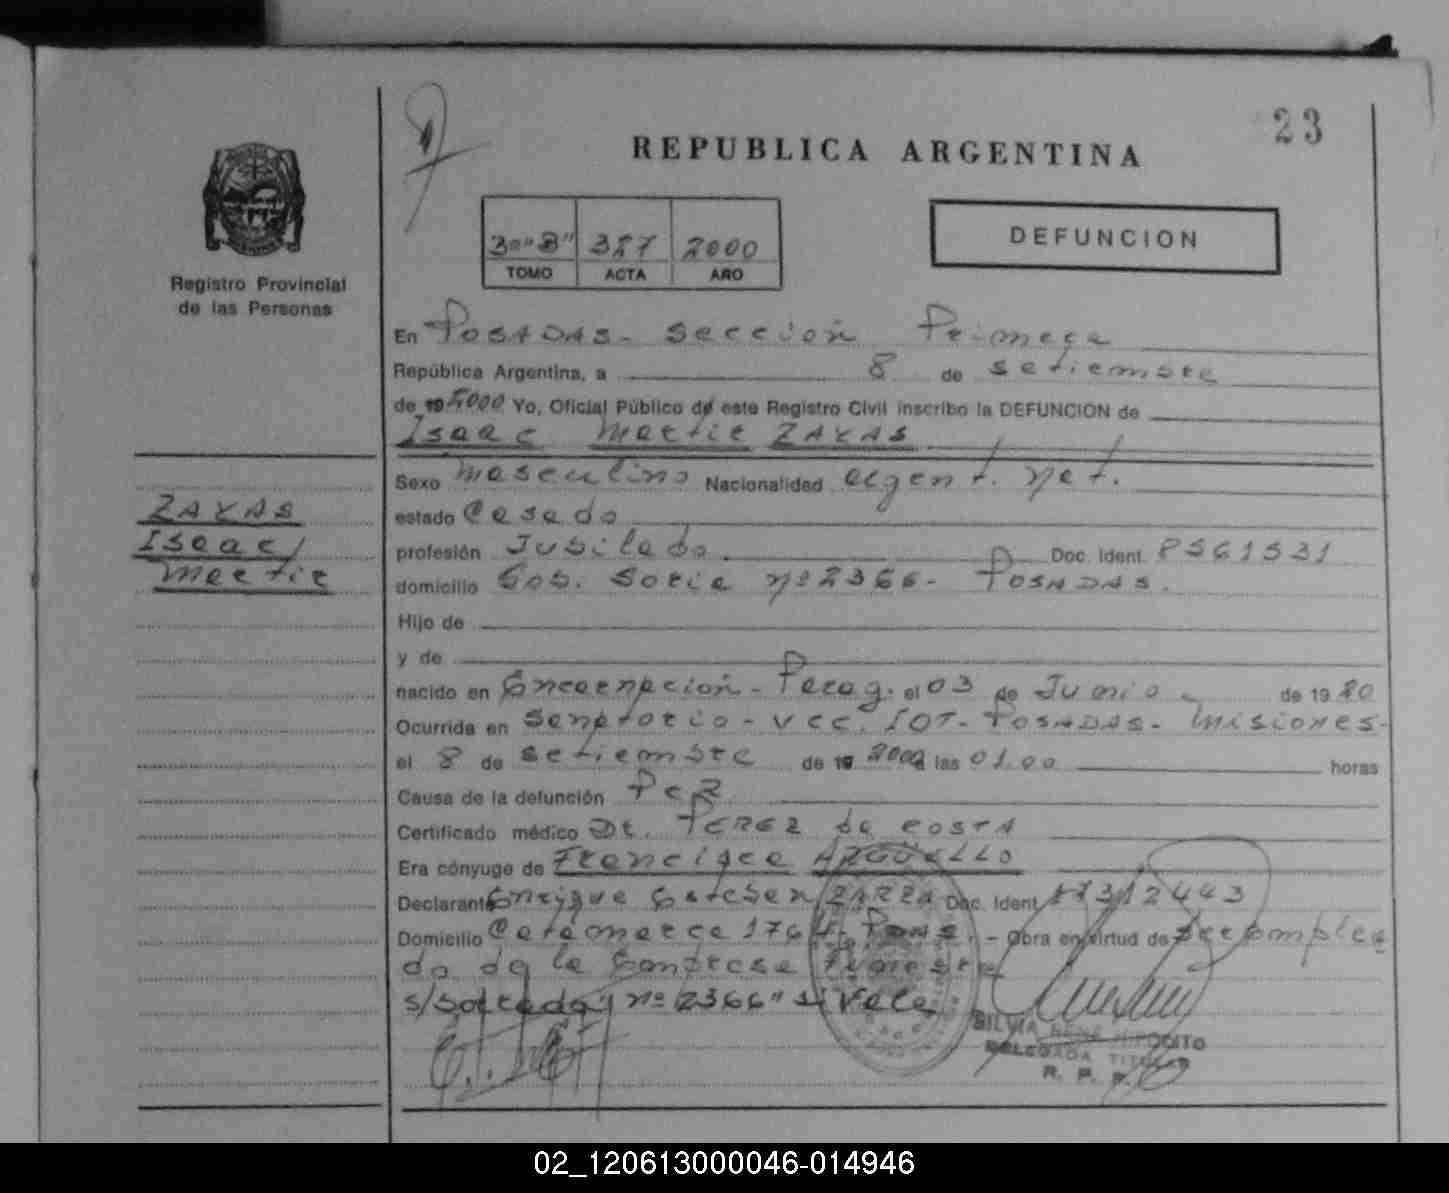 23
REPUBLICA ARGENTINA
3º "B" 327 2000
TOMO ACTA AÑO
DEFUNCION
Registro Provincial
de las Personas
En POSADAS - sección Primera
República Argentina, a 8 de setiembre
de 19 2000 Yo, Oficial Público de este Registro Civil inscribo la DEFUNCION de
Isaac Martir ZAYAS
Sexo masculino Nacionalidad argent. nat.
estado Casado
profesión Jubilado. Doc. Ident. 8561531
domicilio Gob. Soria nº 2366 - POSADAS.
Hijo de
y de
nacido en Encarnación - Parag. el 03 de Junio de 19 20
Ocurrida en Sanatorio - IOT - POSADAS - Misiones -
el 8 de setiembre de 19 2000 a las 01.00 horas
Causa de la defunción PCR
Certificado médico Dr. PEREZ da COSTA
Era cónyuge de Francisca ARGÜELLO
Declarante Enrique Esteban Doc. Ident. 17312443
Domicilio Catamarca 1764 - Obra en virtud de ser emplea
do de la Empresa
s/ nº 2366" Vale
SILVIA RENE HIPOLITO
DELEGADA TITULAR
R. P. P.
ZAYAS
Isaac
Martir
02_120613000046-014946